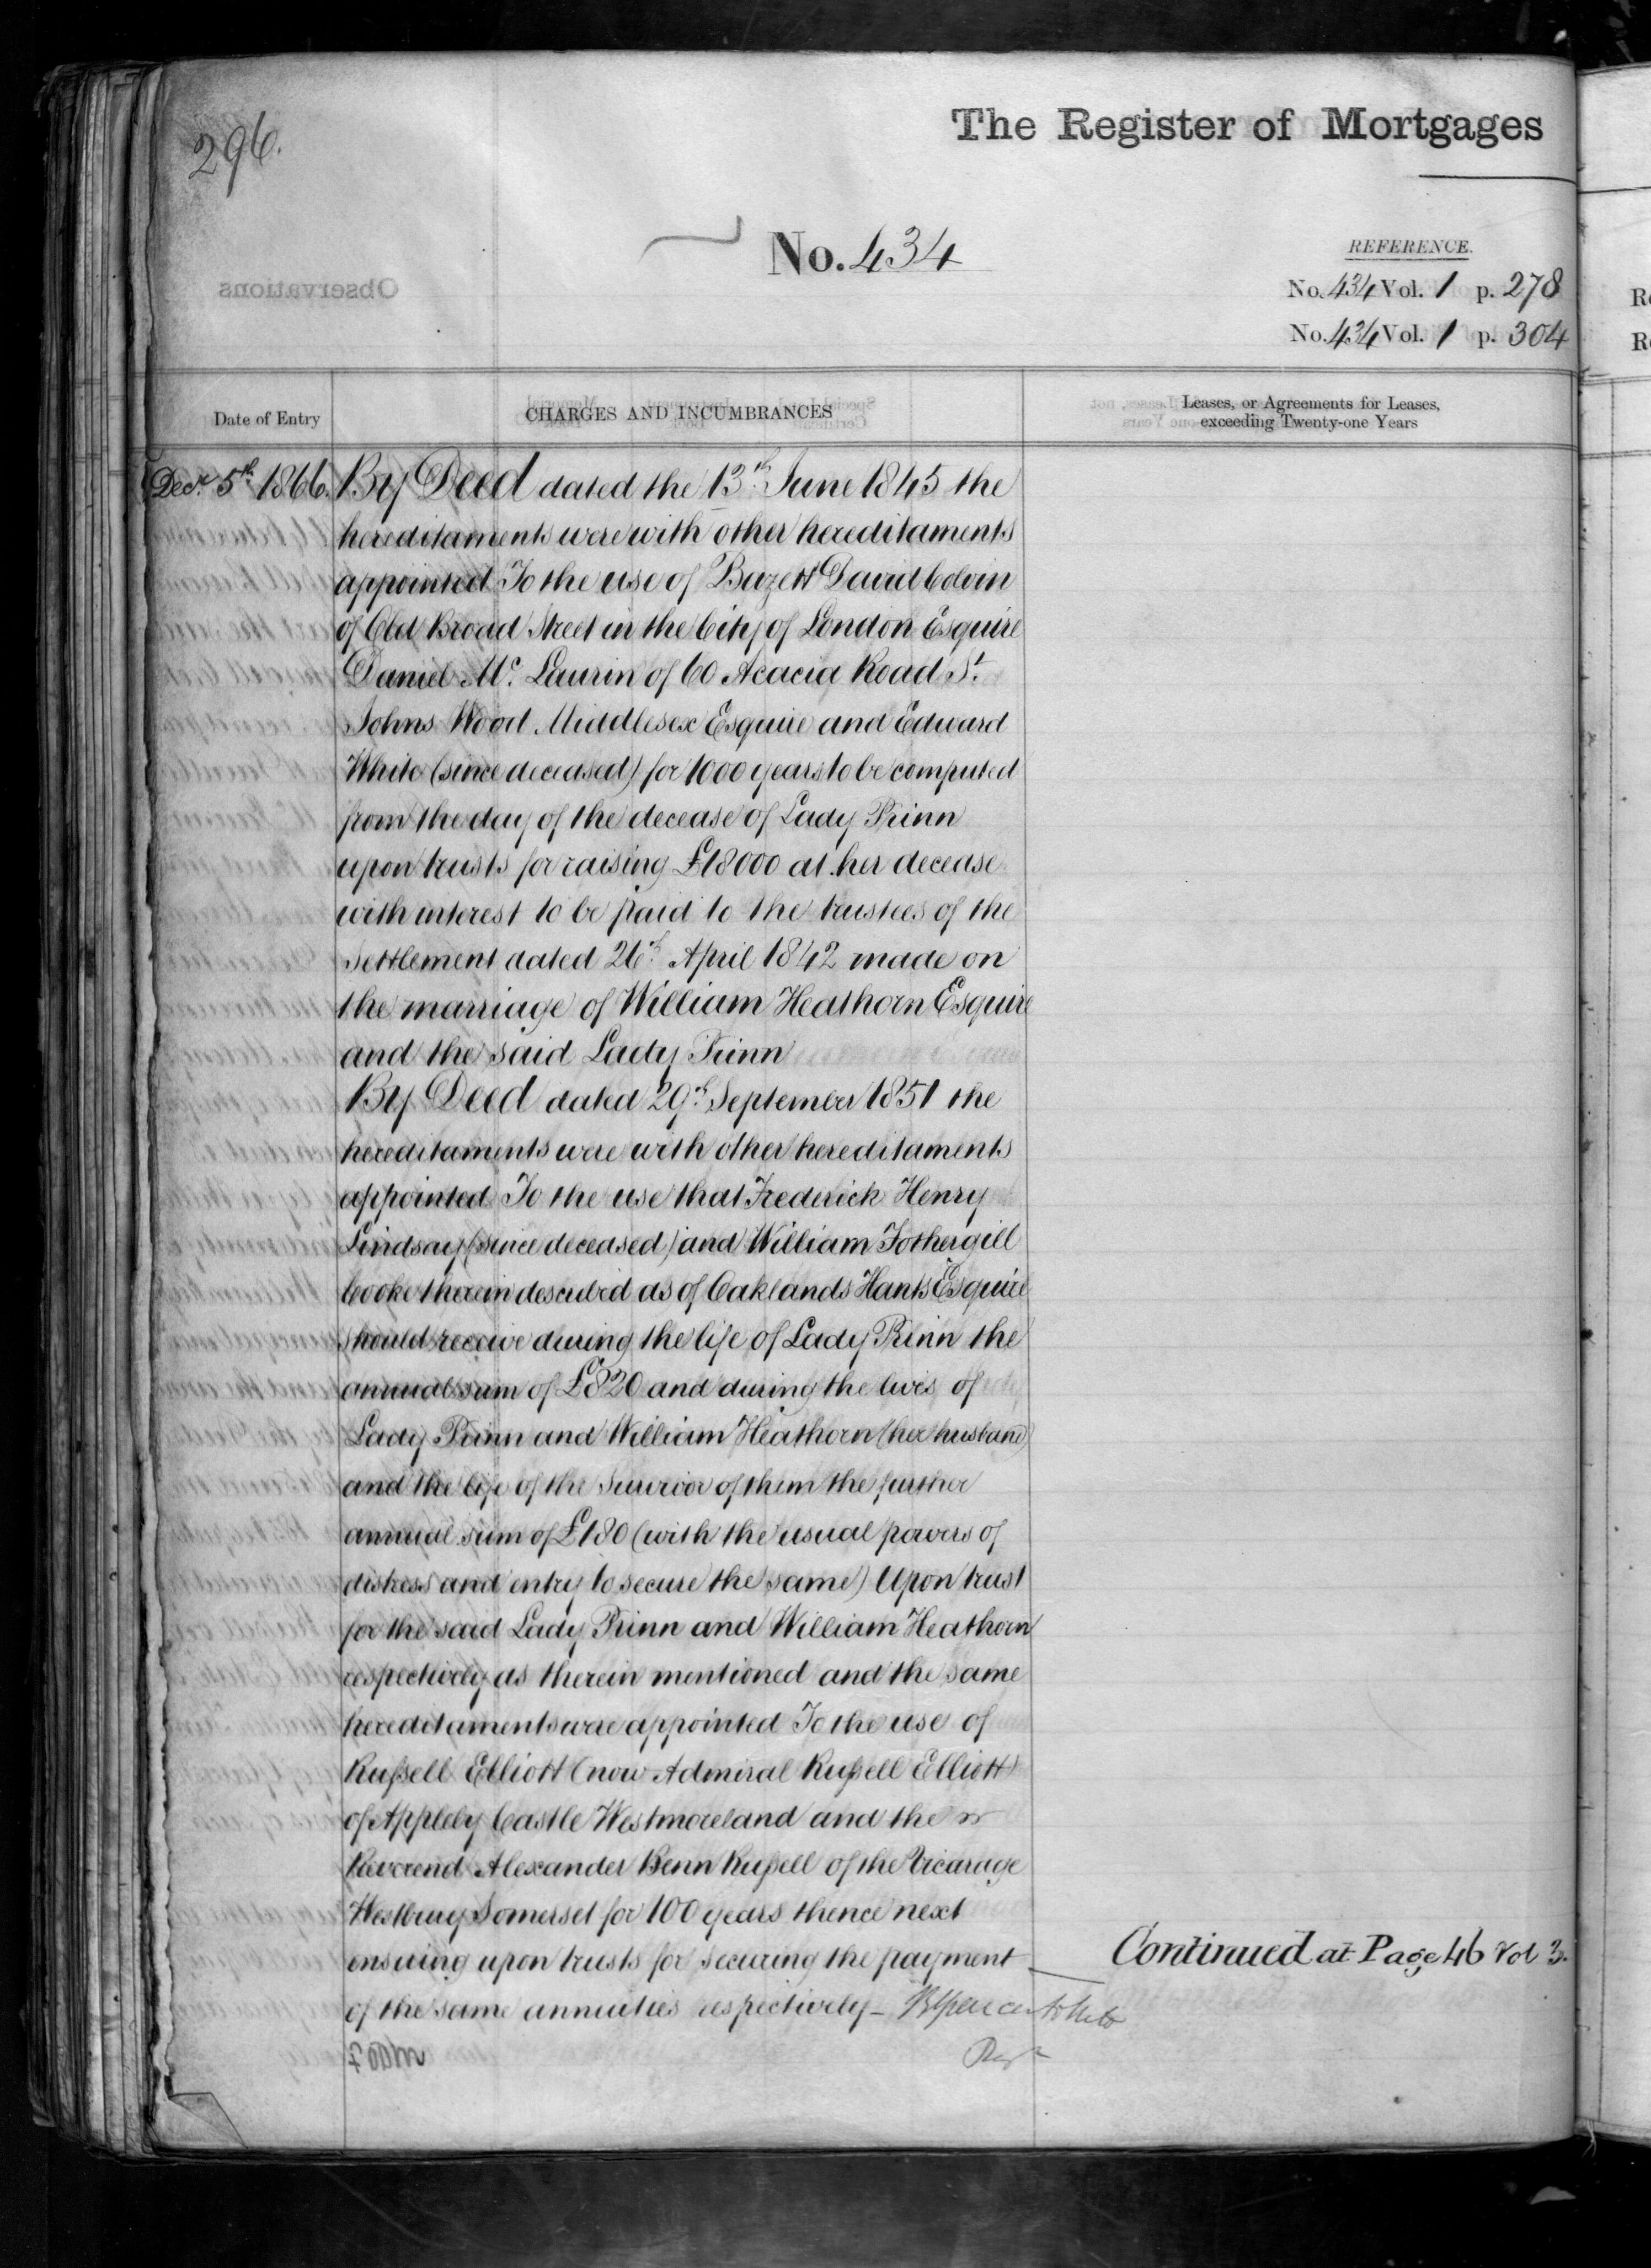 296.
The Register of Mortgages
No. 434
REFERENCE.
No. 434 Vol. 1 p. 278
No. 434 Vol. 1 p. 304
Observations
Date of Entry
CHARGES AND INCUMBRANCES
Leases, or Agreements for Leases,
exceeding Twenty-one Years
Decr. 5th 1866. By Deed dated the 13th June 1845 the
hereditaments were with other hereditaments
appointed To the use of Bazett David Colvin
of Old Broad Street in the City of London Esquire
Daniel Mc. Laurin of 60 Acacia Road St.
Johns Wood Middlesex Esquire and Edward
White (since deceased) for 1000 years to be computed
from the day of the decease of Lady Prinn
upon trusts for raising £18000 at her decease
with interest to be paid to the trustees of the
Settlement dated 26th April 1842 made on
the marriage of William Heathorn Esquire
and the said Lady Prinn
By Deed dated 29th September 1851 the
hereditaments were with other hereditaments
appointed To the use that Frederick Henry
Lindsay (since deceased) and William Fothergill
Cooke therein described as of Oaklands Hants Esquire
should receive during the life of Lady Prinn the
annual sum of £820 and during the lives of
Lady Prinn and William Heathorn (her husband)
and the life of the Survivor of them the further
annual sum of £180 (with the usual powers of
distress and entry to secure the same) Upon trust
for the said Lady Prinn and William Heathorn
respectively as therein mentioned and the same
hereditaments were appointed To the use of
Russell Elliott (now Admiral Russell Elliott)
of Appleby Castle Westmoreland and the
Reverend Alexander Benn Russell of the Vicarage
Westbury Somerset for 100 years thence next
ensuing upon trusts for securing the payment
of the same annuities respectively –
Regr
Continued at Page 46 Vol 3.